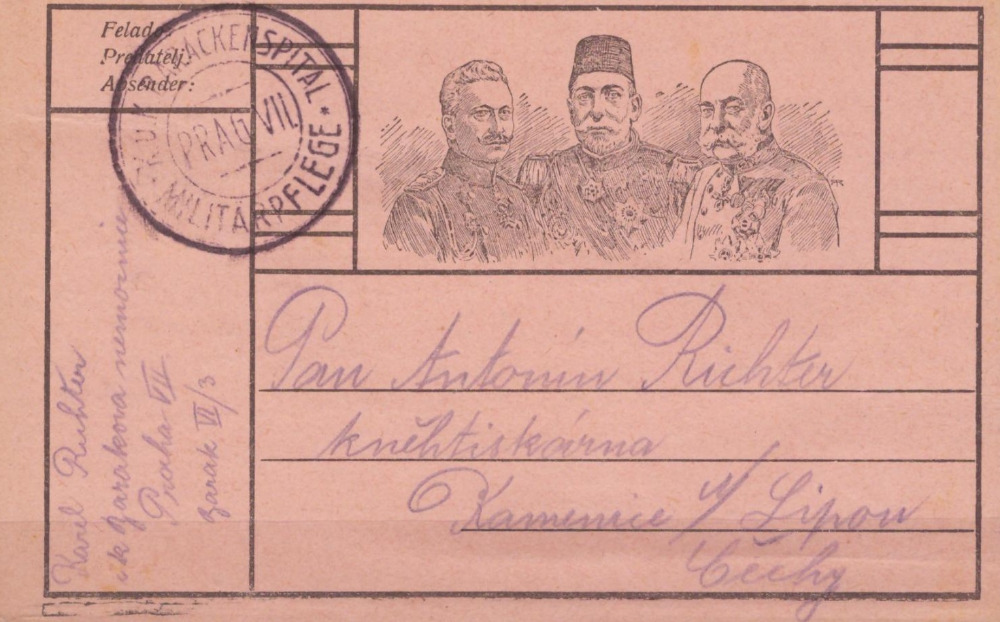 Felado:
Predatelj:
Absender:
K.U.K. BARACKENSPITAL
PRAG VII.
* MILITÄRPFLEGE *
Karel Richter
Barakova nemocnice
Praha-VII
barak VII/3
Pan Antonín Richter
kněhtiskárna
Kamenice n/ Lipou
Čechy